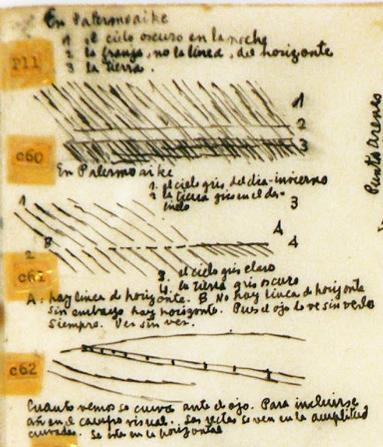 En Palermoaike
1 el cielo oscuro en la noche
2 la franja, no la línea, del horizonte
3 la tierra.
P11
1
2
3
c60
En Palermoaike
1. el cielo gris del día-invierno
2 la tierra gris en el des-
hielo
3
1
A
B
4
2
3. el cielo gris claro
4. la tierra gris oscuro
A. hay línea de horizonte. B No hay línea de horizonte
sin embargo hay horizonte. Pues el ojo lo ve sin verlo
siempre. Ver sin ver.
c62
Cuanto vemos se curva ante el ojo. Para incluirse
aún en el campo visual. Las rectas se ven en la amplitud
curvadas. Se ve en la horizontal
Punta Arenas